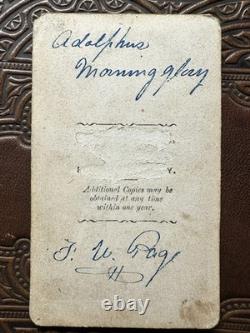 Adolphus
Morning glory
Y.
Additional Copies may be
obtained at any time
within one year.
F. W. Page